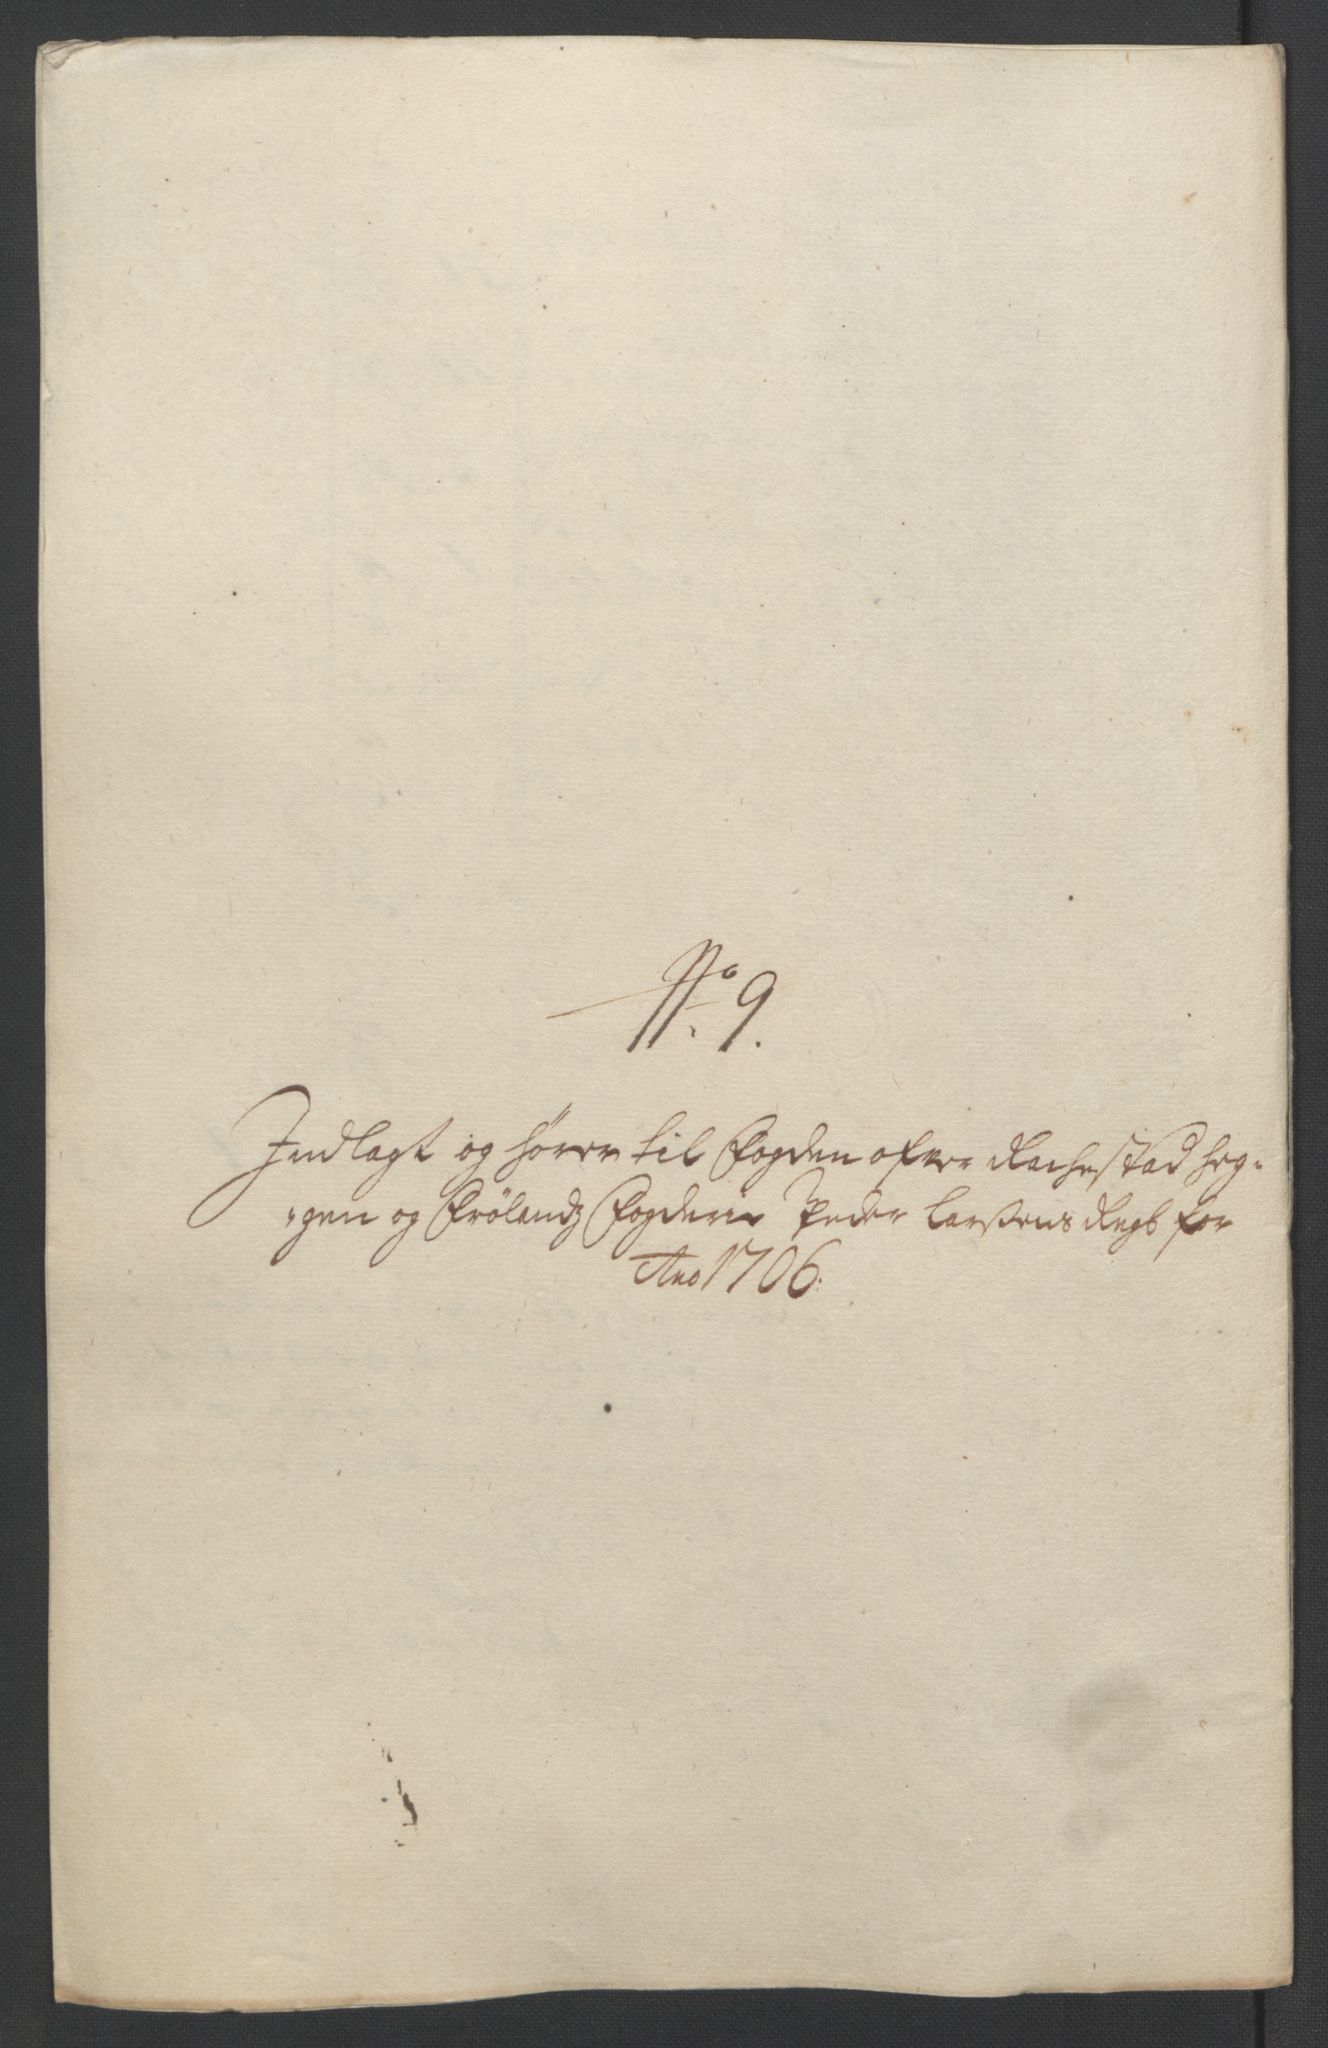 No 9.
Indlagt og hörer til Fogden ofver Rachestad Heg-
"gen og Frölandz Fogderie Peder Larßens Regb for
Ano 1706.